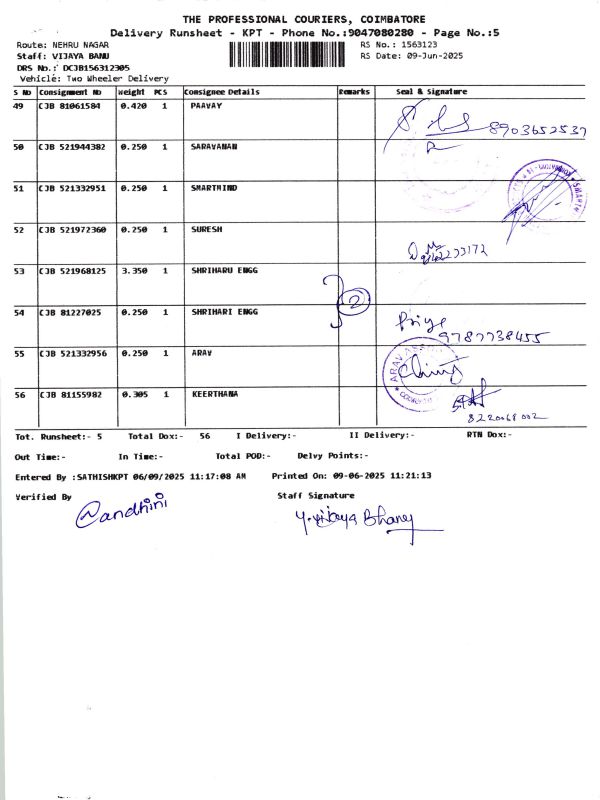 THE PROFESSIONAL COURIERS, COIMBATORE
Delivery Runsheet - KPT - Phone No.:9047080280 - Page No.:5
Route: NEHRU NAGAR RS No.: 1563123
Staff: VIJAYA BANU RS Date: 09-Jun-2025
DRS No.: DCJB156312305
Vehicle: Two Wheeler Delivery
S No Consignment No Weight PCS Consignee Details Remarks Seal & Signature
49 CJB 81061584 0.420 1 PAAVAY
8903652537
50 CJB 521944382 0.250 1 SARAVANAN
51 CJB 521332951 0.250 1 SMARTMIND
52 CJB 521972360 0.250 1 SURESH
53 CJB 521968125 3.350 1 SHRIHARU ENGG
2
54 CJB 81227025 0.250 1 SHRIHARI ENGG
Priya
9787738455
55 CJB 521332956 0.250 1 ARAV
ARAV
56 CJB 81155982 0.305 1 KEERTHANA
Tot. Runsheet:- 5 Total Dox:- 56 I Delivery:- II Delivery:- RTN Dox:-
Out Time:- In Time:- Total POD:- Delvy Points:-
Entered By :SATHISHKPT 06/09/2025 11:17:08 AM Printed On: 09-06-2025 11:21:13
Verified By Staff Signature
Nandhini Y. Vijaya Bhaney